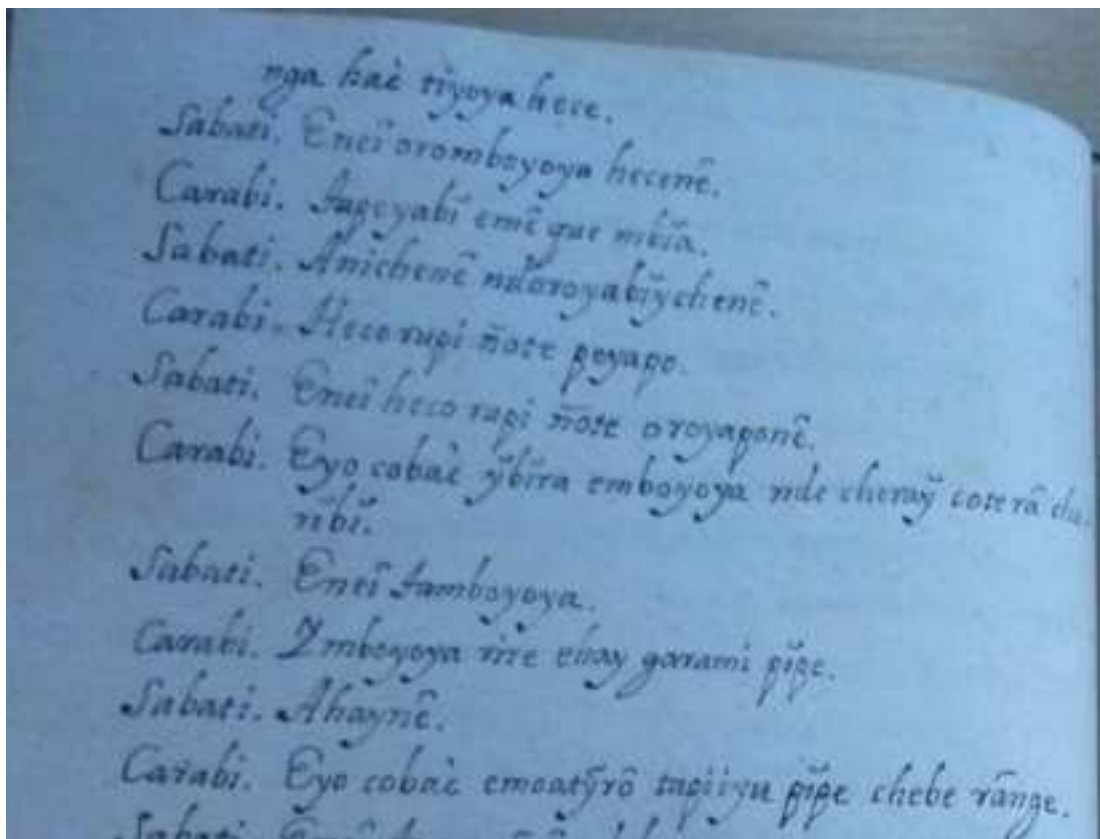 nga haè tiyoya hece.
Sabati. Eneî oromboyoya hecenê.
Carabi. Tapeyabĭ emê que mbĭa.
Sabati. Anichenê ndoroyabĭychenê.
Carabi. Heco rupi ñote peyapo.
Sabati. Eneî heco rupi ñote oroyaponê.
Carabi. Eyo cobaè ỹbĭra emboyoya nde cheraỹ coterâ che
Sabati. Eneî tamboyoya.
Carabi. Ymboyoya rire ehay garami pĭpe.
Sabati. Ahaynê.
Carabi. Eyo cobaè emoatỹrô tapiiyu pĭpe chebe rânge.
Sabati. Eneî